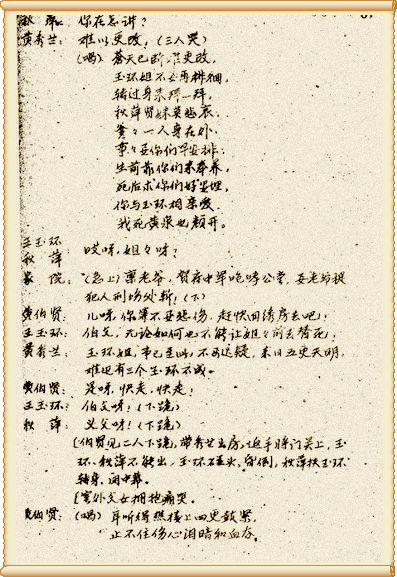 秋萍： 你在怎讲？
黄秀兰： 难以更改，（三人哭）
（唱）苍天已断难更改，
玉环姐不必再徘徊，
转过身来拜一拜，
秋萍贤妹莫悲哀，
爹々一人身在外，
事々要你们早安排，
生前靠你们来奉养，
死后求你们好葬埋，
你与玉环相亲爱，
我死黄泉也颜开。
王玉环
秋 萍： 哎呀，姐々呀！
家 院： （急上）禀老爷，贺府中军咆哮公堂，要老爷
犯人刑场处斩！（下）
黄伯贤： 儿呀，你算不要悲伤，赶快回绣房去吧！
王玉环： 伯父，无论如何也不能让姐々前去替死！
黄秀兰： 玉环姐，事已至此，不可迟疑，来日五更天明，
难道有三个玉环不成。
黄伯贤： 是呀，快走，快走！
王玉环： 伯父呀！（下跪）
秋 萍： 义父呀！（下跪）
〔伯贤见二人下跪，带秀兰出房，返手将门关上，玉
环、秋萍不能出，玉环昏倒，秋萍扶玉环
转身，闭中幕。
〔室外父女拥抱痛哭。
黄伯贤： （唱）耳听得熊楼上四更鼓紧，
止不住伤心泪暗和血吞。